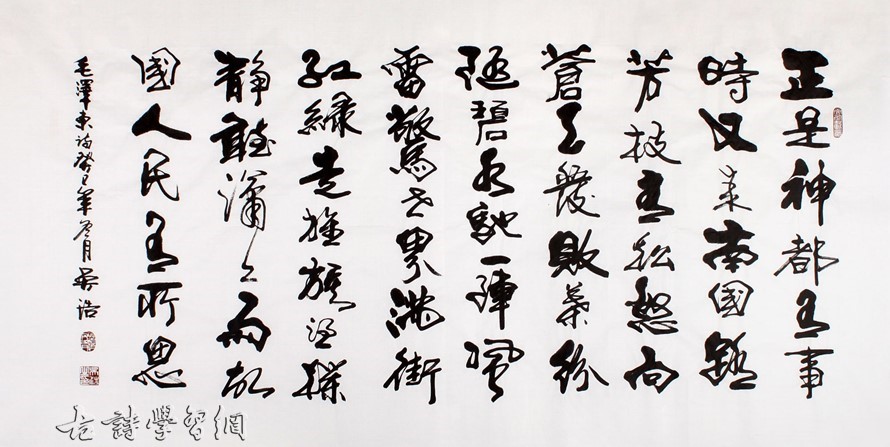 正是神都有事
時又来南國踏
芳枝青松怒向
蒼天發敗葉紛
随碧水馳一陣風
雷驚世界滿街
紅綠走旌旗憑欄
靜聽瀟々雨故
國人民有所思
毛澤東詩癸巳年冬月
古詩學習網